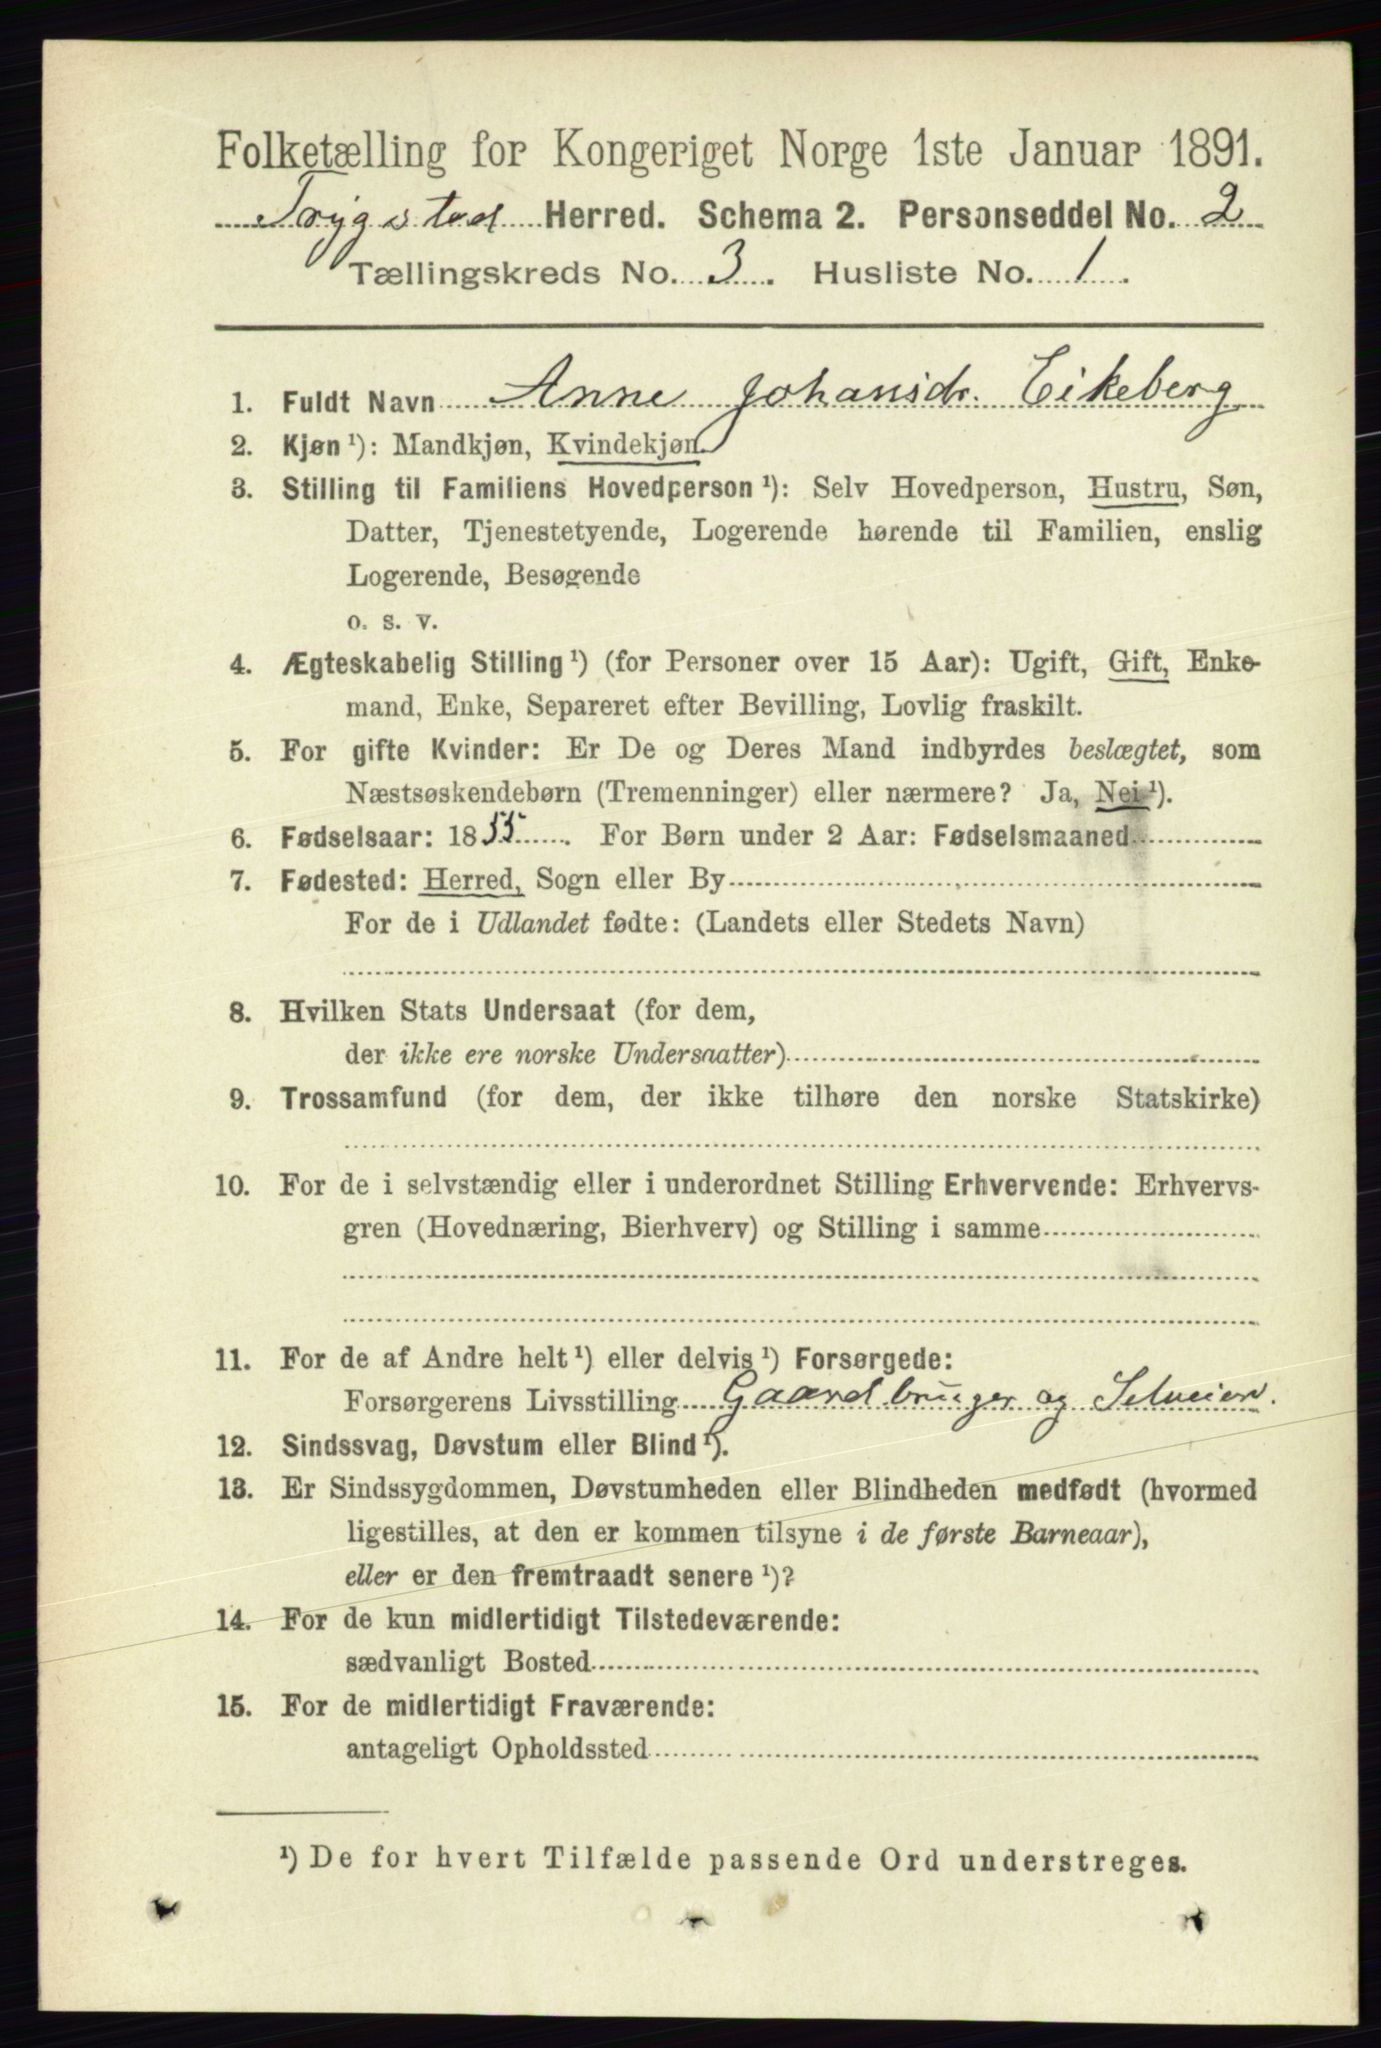 Folketælling for Kongeriget Norge 1ste Januar 1891.
Trygstad Herred. Schema 2. Personseddel No. 2
Tællingskreds No. 3. Husliste No. 1.
1. Fuldt Navn Anne Johansdr. Eikeberg
2. Kjøn ¹): Mandkjøn, Kvindekjøn.
3. Stilling til Familiens Hovedperson ¹): Selv Hovedperson, Hustru, Søn,
Datter, Tjenestetyende, Logerende hørende til Familien, enslig
Logerende, Besøgende
o. s. v.
4. Ægteskabelig Stilling ¹) (for Personer over 15 Aar): Ugift, Gift, Enke-
mand, Enke, Separeret efter Bevilling, Lovlig fraskilt.
5. For gifte Kvinder: Er De og Deres Mand indbyrdes beslægtet, som
Næstsøskendebørn (Tremenninger) eller nærmere? Ja, Nei ¹).
6. Fødselsaar: 1855. For Børn under 2 Aar: Fødselsmaaned
7. Fødested: Herred, Sogn eller By
For de i Udlandet fødte: (Landets eller Stedets Navn)
8. Hvilken Stats Undersaat (for dem,
der ikke ere norske Undersaatter)
9. Trossamfund (for dem, der ikke tilhøre den norske Statskirke)
10. For de i selvstændig eller i underordnet Stilling Erhvervende: Erhvervs-
gren (Hovednæring, Bierhverv) og Stilling i samme
11. For de af Andre helt ¹) eller delvis ¹) Forsørgede:
Forsørgerens Livsstilling Gaardbruger og Selveier.
12. Sindssvag, Døvstum eller Blind ¹).
13. Er Sindssygdommen, Døvstumheden eller Blindheden medfødt (hvormed
ligestilles, at den er kommen tilsyne i de første Barneaar),
eller er den fremtraadt senere ¹)?
14. For de kun midlertidigt Tilstedeværende:
sædvanligt Bosted
15. For de midlertidigt Fraværende:
antageligt Opholdssted
¹) De for hvert Tilfælde passende Ord understreges.